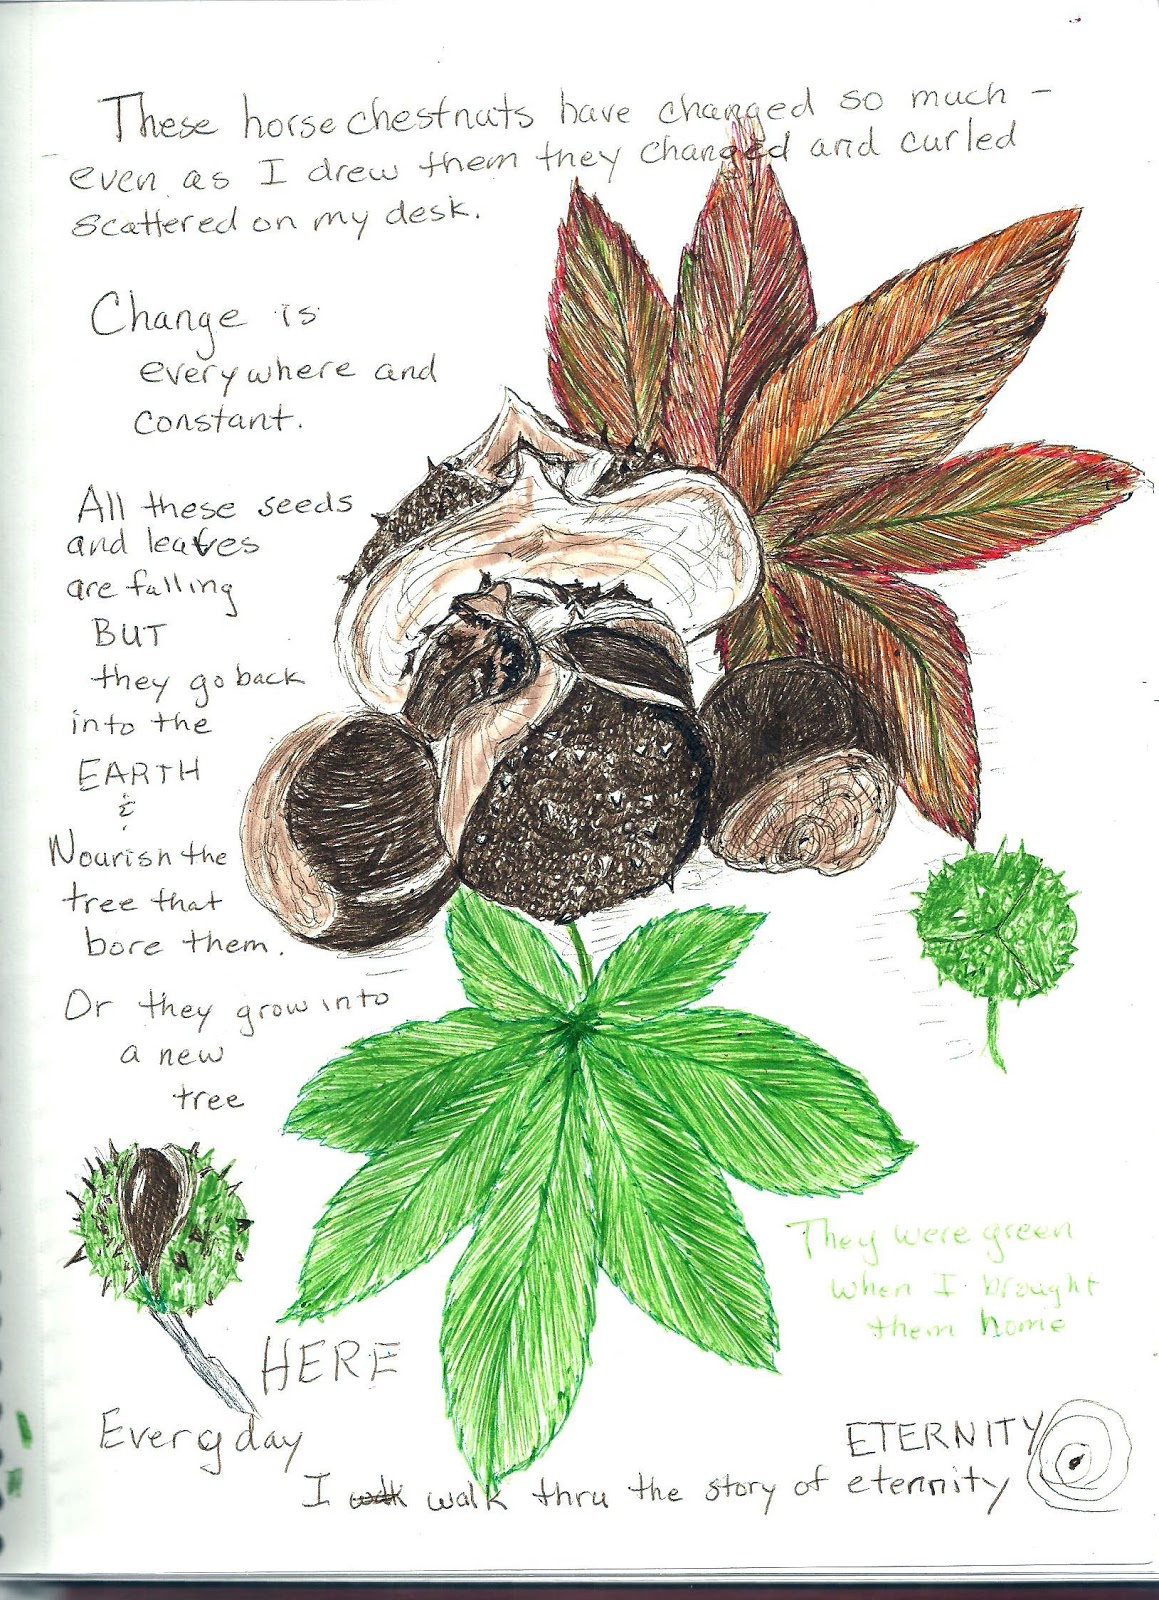 These horse chestnuts have changed so much -
even as I drew them they changed and curled
scattered on my desk.
Change is
everywhere and
constant.
All these seeds
and leaves
are falling
BUT
they go back
into the
EARTH
&
Nourish the
tree that
bore them.
Or they grow into
a new
tree
They were green
when I brought
them home
HERE
Everyday
ETERNITY
I walk walk thru the story of eternity